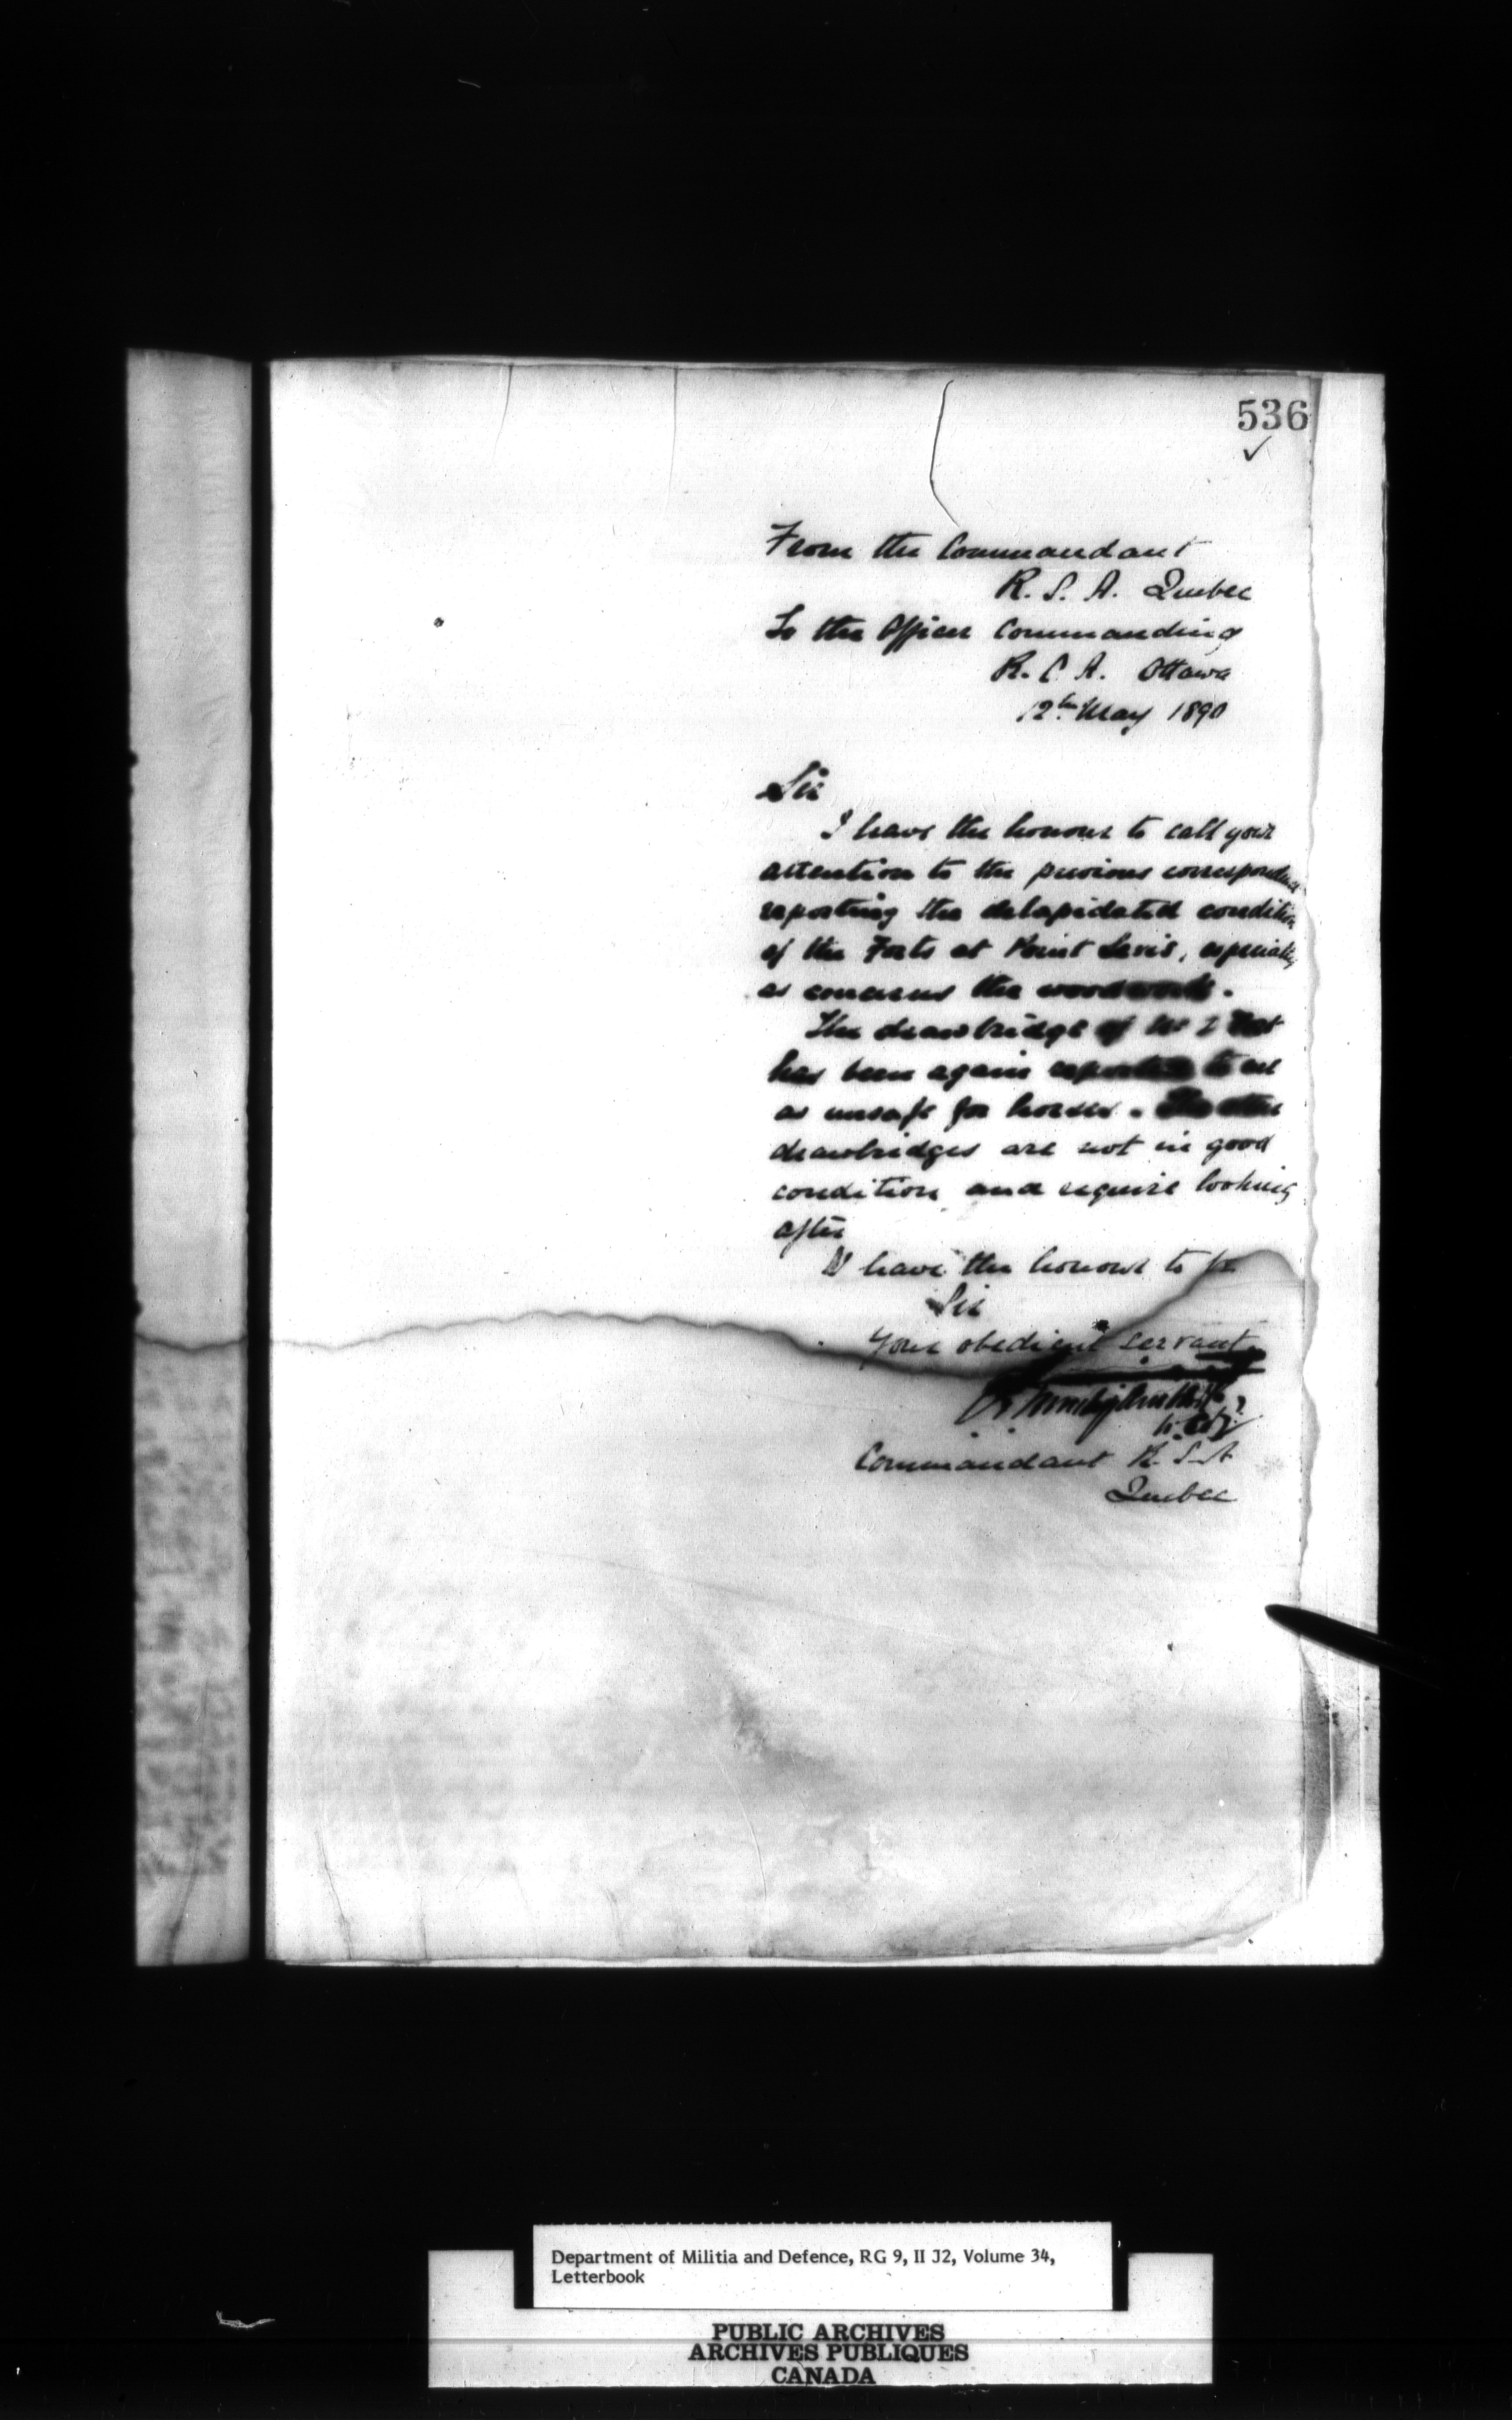 536
From the Commandant
R. S. A. Quebec
To the Officer Commanding
R. C A. Ottawa
12th May 1890
Sir
I have the honour to call your
attention to the previous correspondence
reporting the delapidated condition
of the Forts at Point Levis, especially
as concerns the woodwork.
The drawbridge of No 2 Fort
has been again reported to me
as unsafe for horses. The other
drawbridges are not in good
condition and require looking
after
I have the honour to be
Sir
Your obedient servant
Commandant R. S. A
Quebec
Department of Militia and Defence, RG 9, II J2, Volume 34,
Letterbook
PUBLIC ARCHIVES
ARCHIVES PUBLIQUES
CANADA